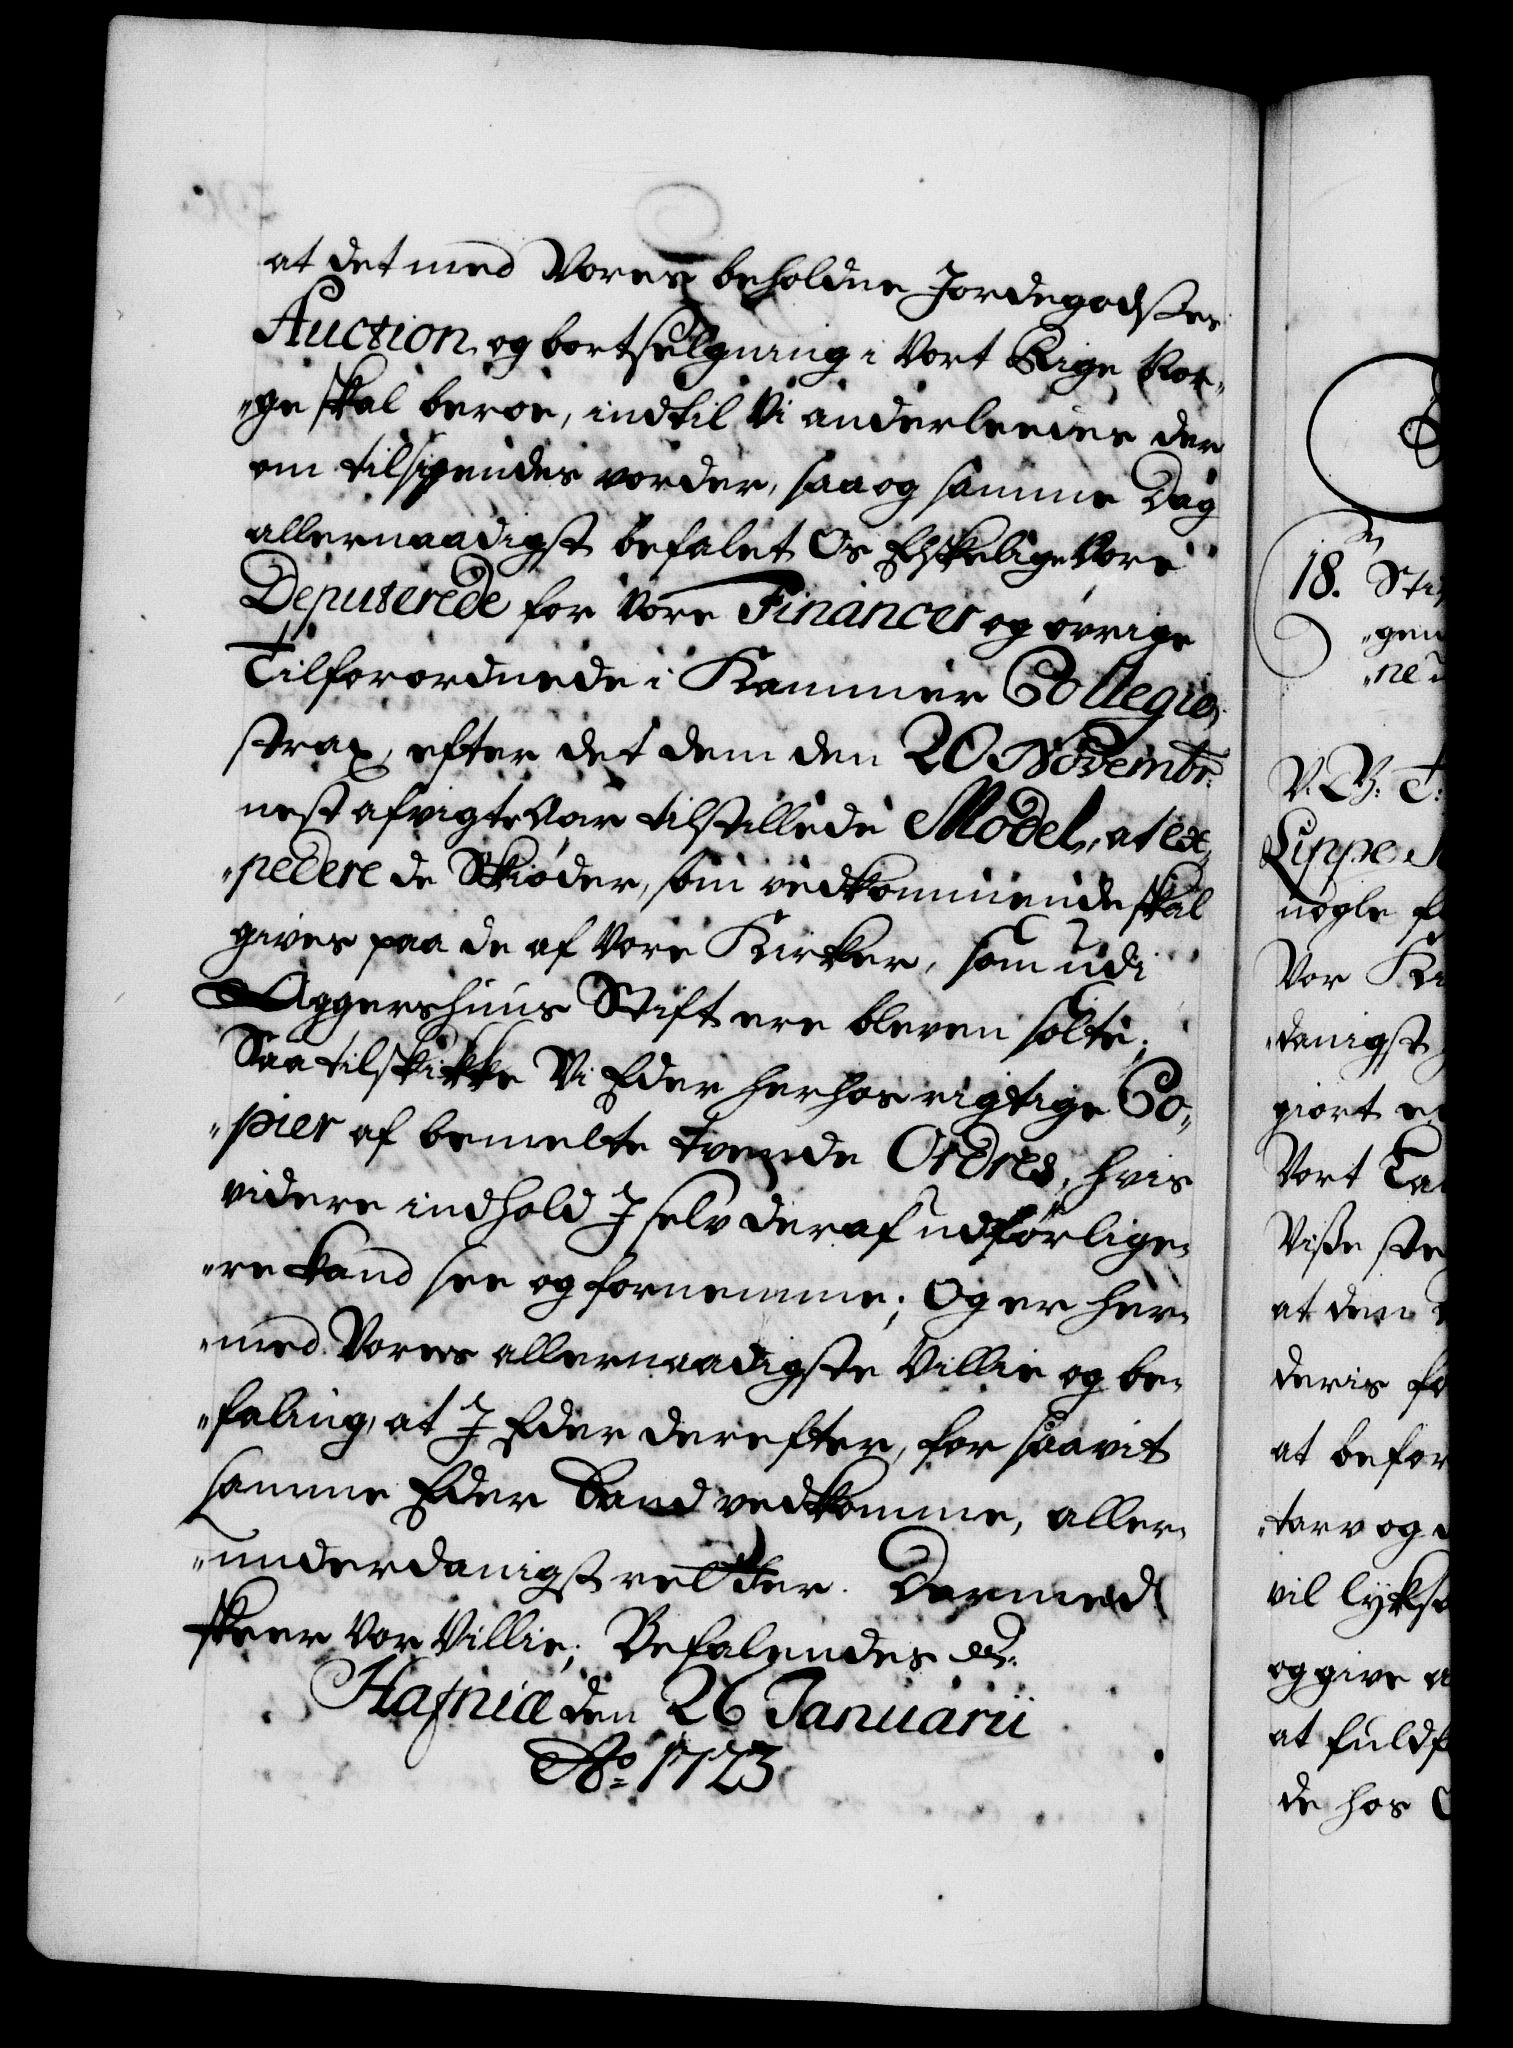 at det med Vores beholdne Jordegodsses
Auction, og bortselgning i Vort Rige Nor-
"ge skal beroe, indtil Vi anderleedes der
om tilsigendes vorder, saa og samme Dag
allernaadigst befalet Os Elskelige Vore
Deputerede for Vore Financer og øvrige
Tilforordnede i Kammer Collegio,
strax, efter det dem den 20 Novembr:
nest afvigte Aar tilstillede Model, at ex-
"pedere de Skiøder, som vedkommende skal
gives paa de af Vore Kirker, som udi
Aggershuus Stift ere bleven solte;
Saa tilskikke Vi Eder herhos rigtige Co-
"pier af bemelte tvende Ordres, hvis
videre indhold I selv deraf udførlige-
"re kand see og fornemme; Og er her-
"med Vores allernaadigste Villie og be-
"faling, at I Eder derefter, for saavit
samme Eder Band vedkomme, aller-
"underdanigst retter. Dermed
skeer Vor Villie; Befalendes etc.
Hafniæ den 26 Januarii
Ao: 1723
18. Sti
"gen
"ne
V. G. T:
Lippe
nogle
Vor
"danigst
giort
Vort
Visse
at den
deris
at
"tarv og
vil
og give
at
de hos